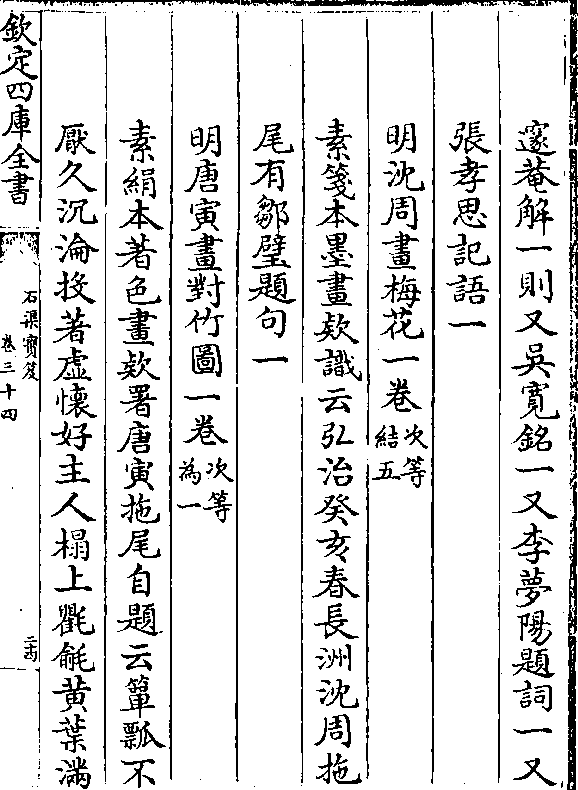 邃菴解一則又吳寬銘一又李夢陽題詞一又
張孝思記語一
明沈周畫梅花一卷次等結五
素箋本墨畫欵識云弘治癸亥春長洲沈周拖
尾有鄒璧題句一
明唐寅畫對竹圖一卷次等為一
素絹本著色畫欵署唐寅拖尾自題云簞瓢不
厭久沉淪投著虛懷好主人榻上氍毹黃葉滿
欽定四庫全書
石渠寶笈
卷三十四